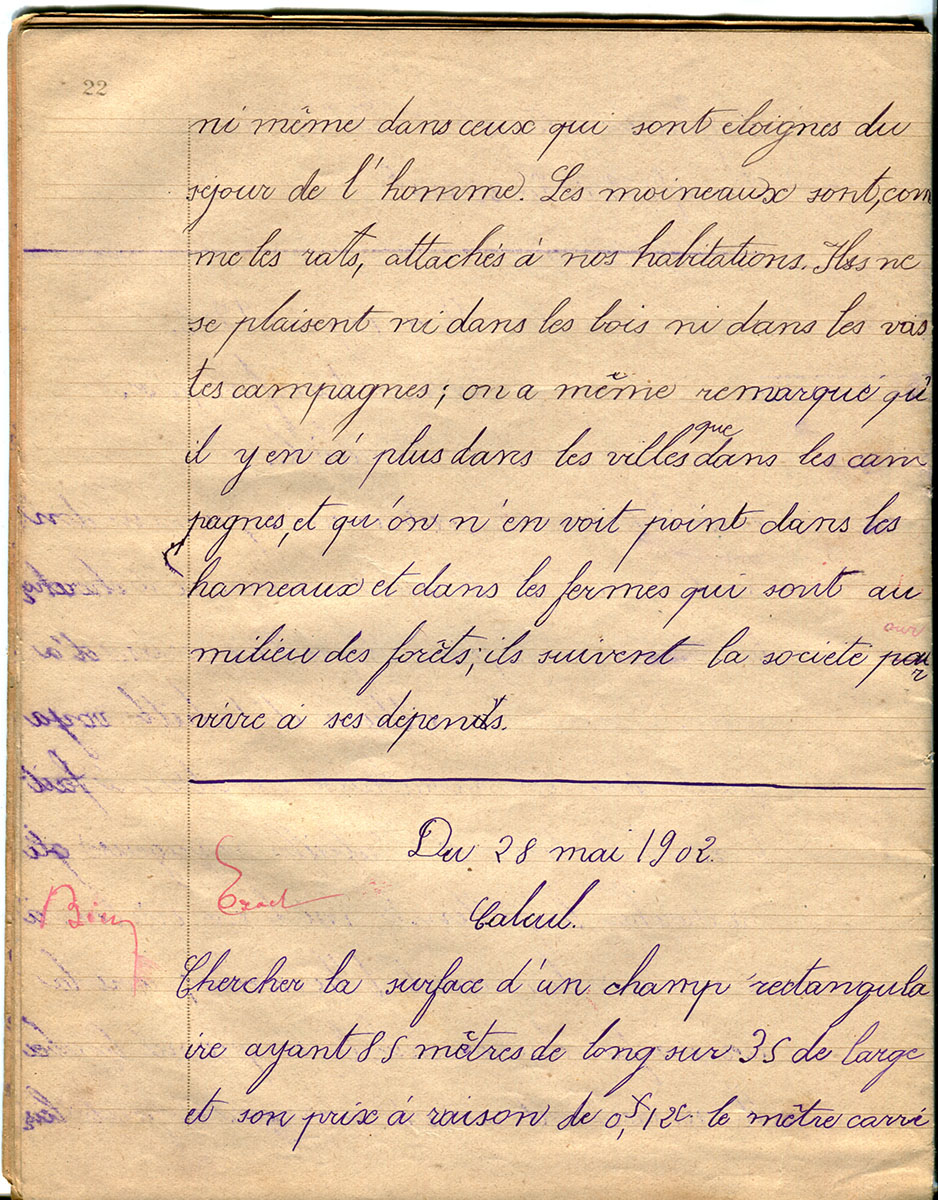 22
ni même dans ceux qui sont eloignes du
séjour de l'homme. Les moineaux sont, com
me les rats, attachés à nos habitations. Ils ne
se plaisent ni dans les bois ni dans les vas
tes campagnes; on a même remarqué qu'
il y en à plus dans les villes que dans les cam
pagnes, et qu'on n'en voit point dans les
hameaux et dans les fermes qui sont au
milieu des forêts; ils suivent la société pour
our
vivre à ses dépens.
Du 28 mai 1902.
Exact
Calcul.
Bien
Chercher la surface d'un champ rectangula
ire ayant 85 mêtres de long sur 35 de large
et son prix à raison de 0,f12c le mêtre carré